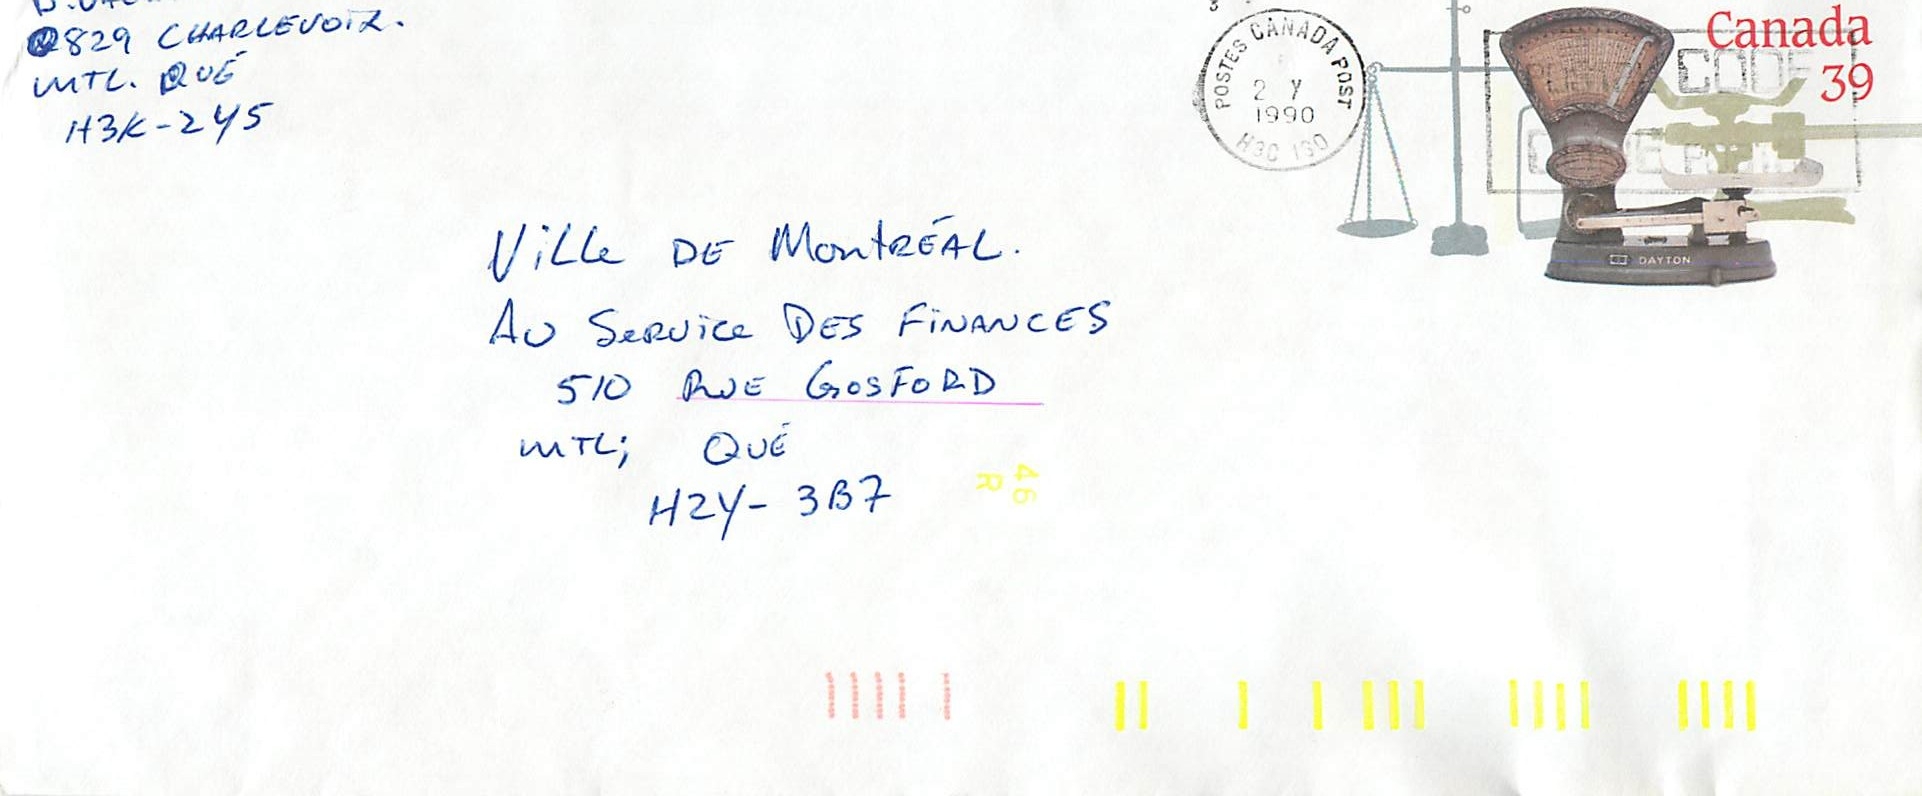 829 CHARLEVOIX.
MTL. QUÉ
H3K-2Y5
POSTES CANADA POST
2 Y
1990
H3C 1S0
Canada
39
CODE
DAYTON
Ville DE MontRÉAL.
AU SERVice DES FiNANCES
510 RUE GOSFORD
MTL; QUÉ
H2Y- 3B7
46
R